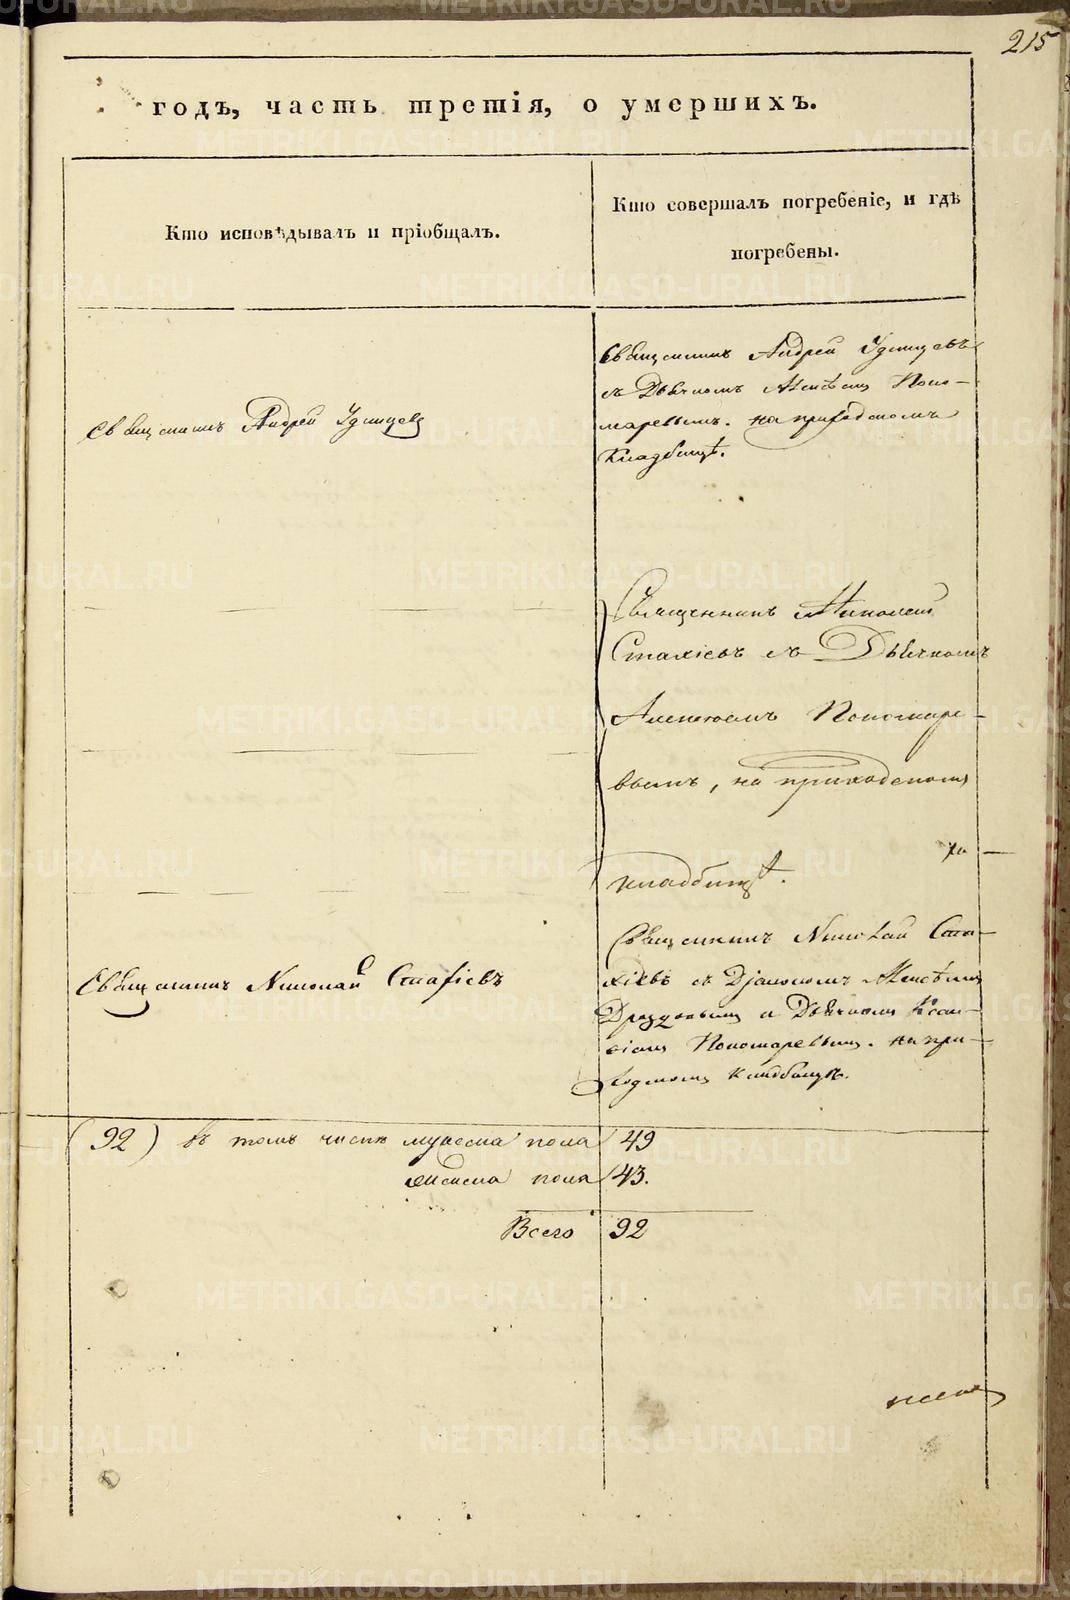 215
годъ, часть третія, о умершихъ.
Кто исповѣдывалъ и пріобщалъ.
Кто совершалъ погребеніе, и гдѣ
погребены.
Священникъ Андрей Удинцевъ
Священникъ Андрей Удинцевъ
съ Дьячкомъ Алексѣемъ Поно-
маревымъ. на приходскомъ
Кладбищѣ.
Священникъ Николай
Стахіевъ съ Дьячкомъ
Алексѣемъ Пономаре-
вымъ, на приходскомъ
кладбищѣ.
Священникъ Николай Стахіевъ
Священникъ Николай Ста-
хіевъ съ Діакономъ Алексѣемъ
и Дьячкомъ
Пономаревымъ. на при-
ходскомъ кладбищѣ.
(92) въ томъ числѣ мужеска пола 49
женска пола 43.
Всего 92
METRIKI.GASO-URAL.RU